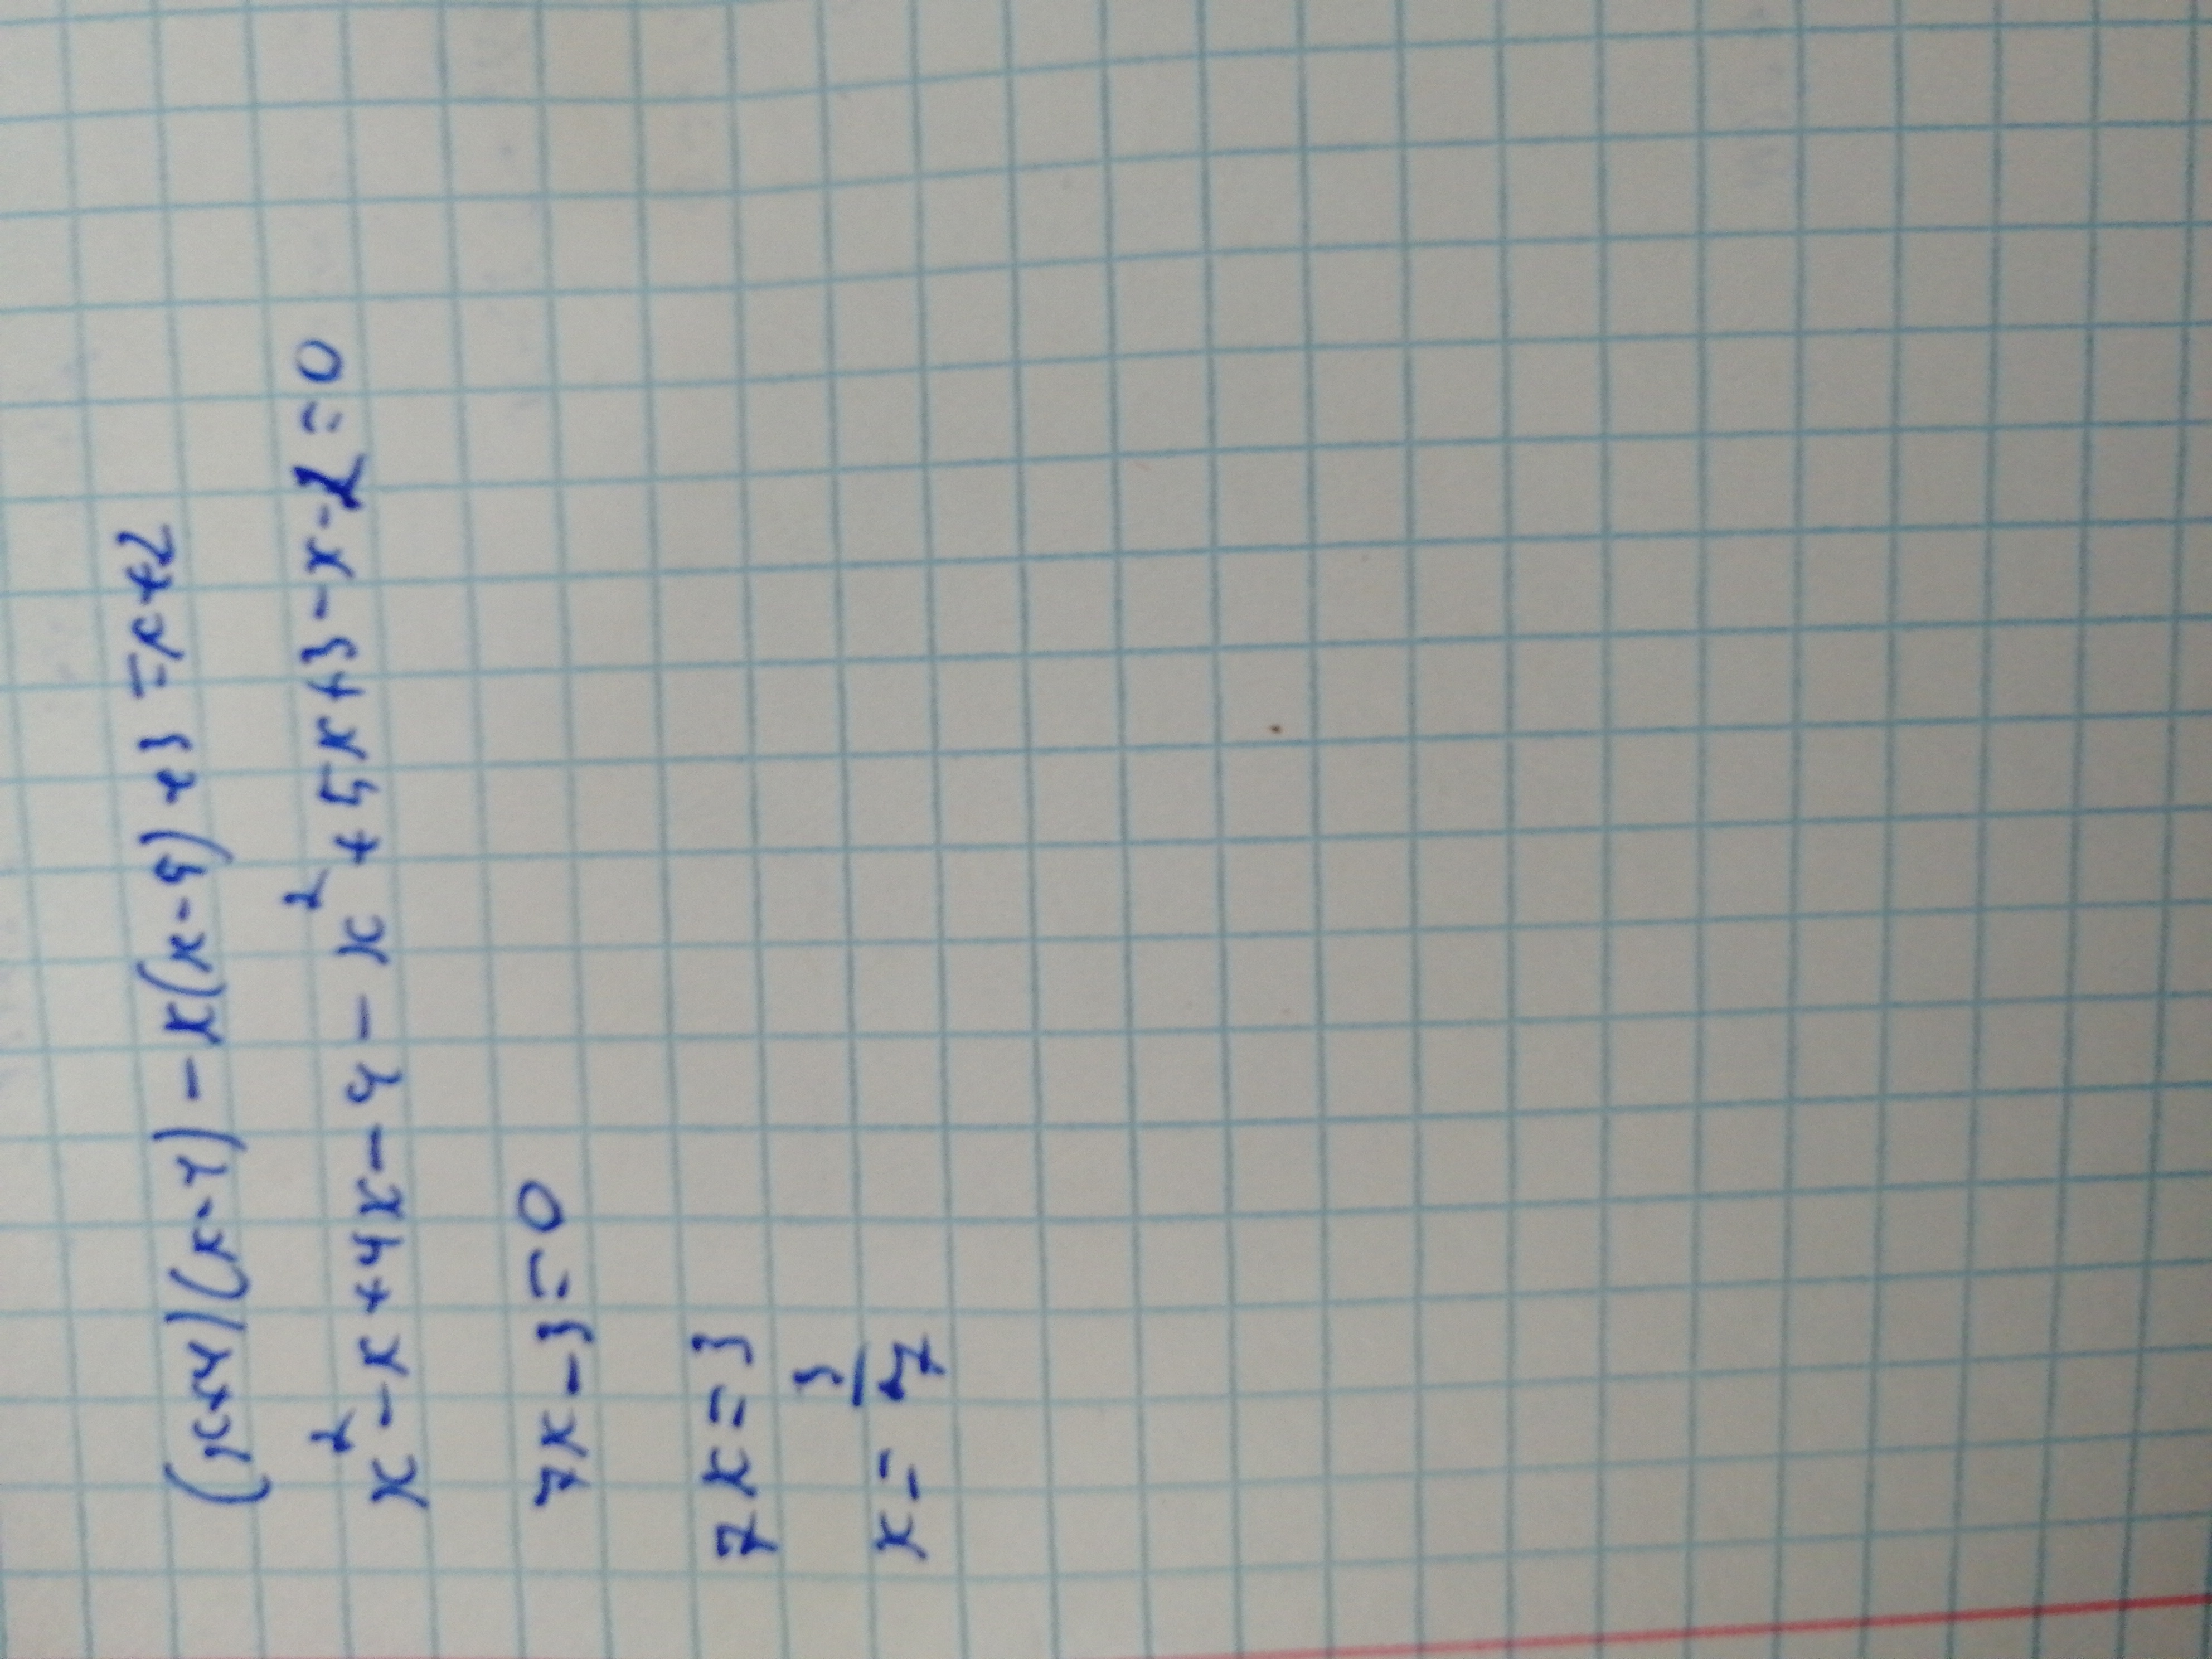 (x+4)(x-1) - x(x-5)+3 = x+2
x² - x + 4x - 4 - x² + 5x + 3 - x - 2 = 0
7x - 3 = 0
7x = 3
x = 3/7